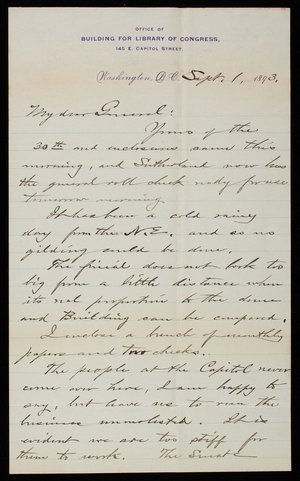 OFFICE OF
BUILDING FOR LIBRARY OF CONGRESS,
145 E. CAPITOL STREET.
Washington, D.C. Sept. 1, 1893.
My dear General:
Yours of the
30th and enclosures came this
morning, and Sutherland now has
the general roll check ready for use
tomorrow morning.
It has been a cold rainy
day from the N.E. and so no
gilding could be done.
The finial does not look too
big from a little distance when
its real proportion to the dome
and Building can be compared.
I inclose a bunch of monthly
papers and two checks.
The people at the Capitol never
come over here, I am happy to
say, but leave us to run the
business unmolested. It is
evident we are too stiff for
them to work. The Senate